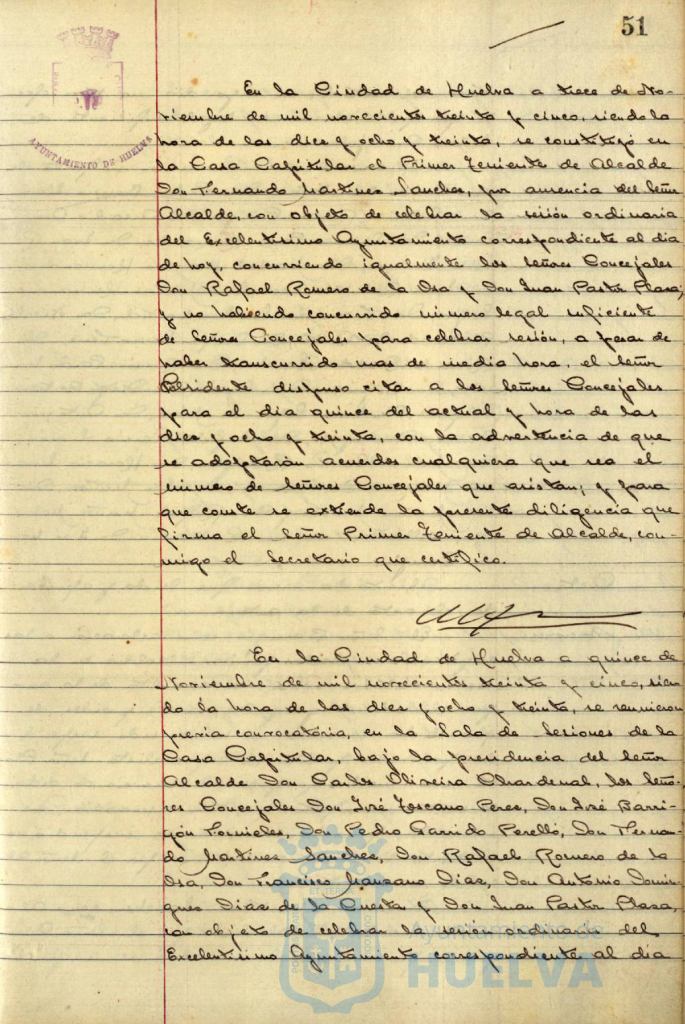 51
AYUNTAMIENTO DE HUELVA
En la Ciudad de Huelva a trece de No-
viembre de mil novecientos treinta y cinco, siendo la
hora de las diez y ocho y treinta, se constituyó en
la Casa Capitular el Primer Teniente de Alcalde
Don Fernando Martinez Sanchez, por ausencia del Señor
Alcalde, con objeto de celebrar la sesión ordinaria
del Excelentisimo Ayuntamiento correspondiente al dia
de hoy, concurriendo igualmente los Señores Concejales
Don Rafael Romero de la Osa y Don Juan Pastor Plaza;
y no habiendo concurrido número legal suficiente
de Señores Concejales para celebrar sesión, a pesar de
haber transcurrido mas de media hora, el Señor
Presidente dispuso citar a los Señores Concejales
para el dia quince del actual y hora de las
diez y ocho y treinta, con la advertencia de que
se adoptarán acuerdos cualquiera que sea el
número de Señores Concejales que asistan; y para
que conste se extiende la presente diligencia que
firma el Señor Primer Teniente de Alcalde, con-
migo el Secretario que certifico.
En la Ciudad de Huelva a quince de
Noviembre de mil novecientos treinta y cinco, sien-
do la hora de las diez y ocho y treinta, se reunieron
previa convocatoria, en la Sala de Sesiones de la
Casa Capitular, bajo la presidencia del Señor
Alcalde Don Carlos Oliveira Chardenal, los Seño-
res Concejales Don José Toscano Perez, Don José Barri-
gón Fornieles, Don Pedro Garrido Perelló, Don Fernan-
do Martinez Sanchez, Don Rafael Romero de la
Osa, Don Francisco Manzano Diaz, Don Antonio Domin-
guez Diaz de la Cuesta y Don Juan Pastor Plaza,
con objeto de celebrar la sesión ordinaria del
Excelentisimo Ayuntamiento correspondiente al dia
Ayuntamiento de
HUELVA